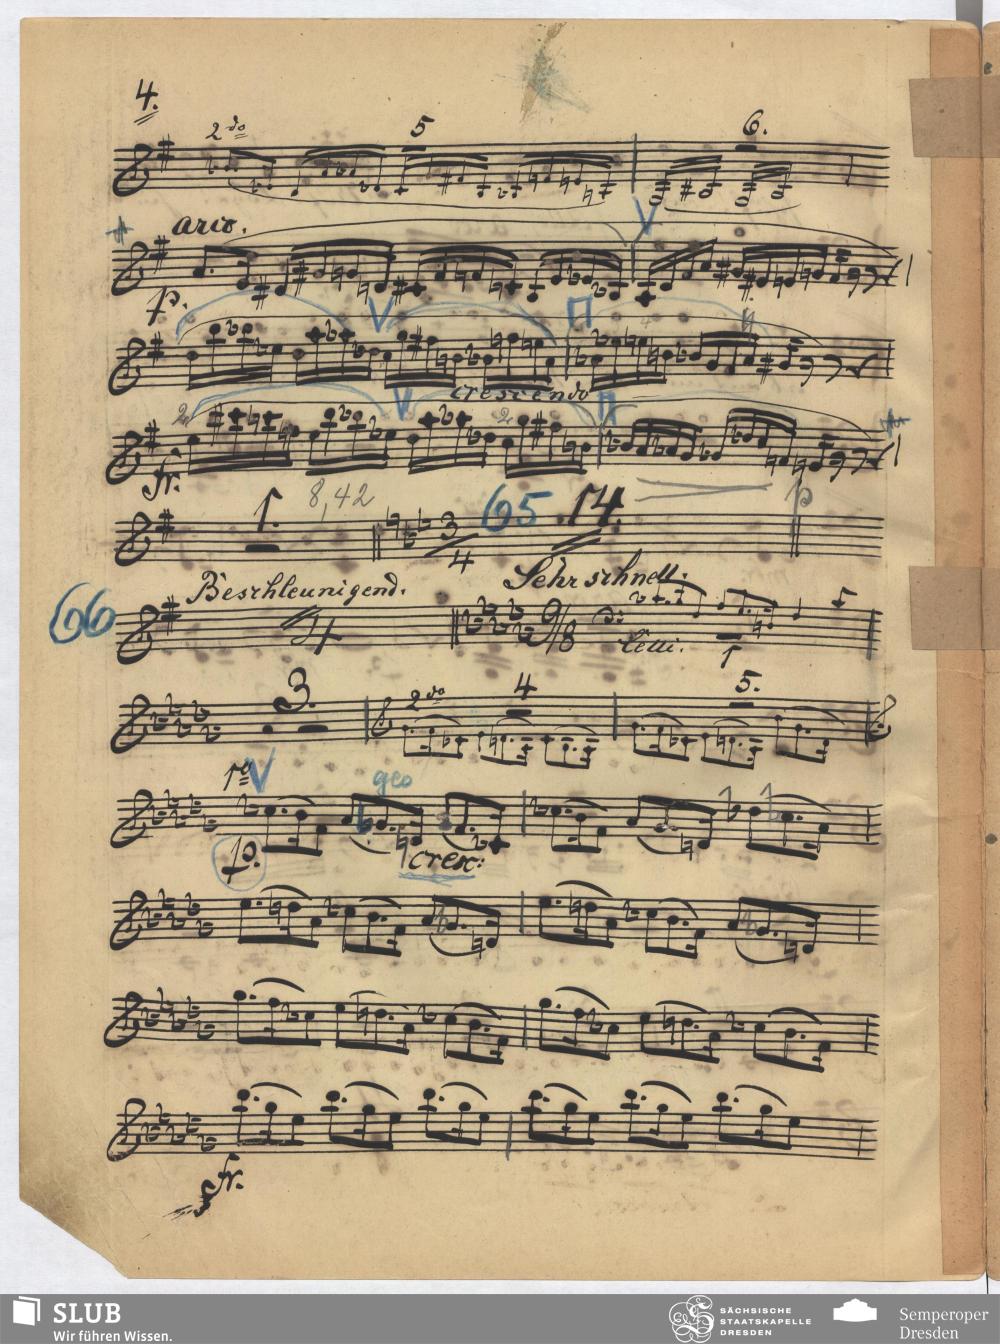 4.
2do 5 6.
arco.
p.
crescendo
2 2
fr.
1. 8,42 3/4 65 14
p
66 Beschleunigend. 4 Sehr schnell.
9/8 Celli. 1
3. 2do 4 5.
1o geo
p. cresc:
fr.
SLUB
Wir führen Wissen.
SÄCHSISCHE
STAATSKAPELLE
DRESDEN
Semperoper
Dresden